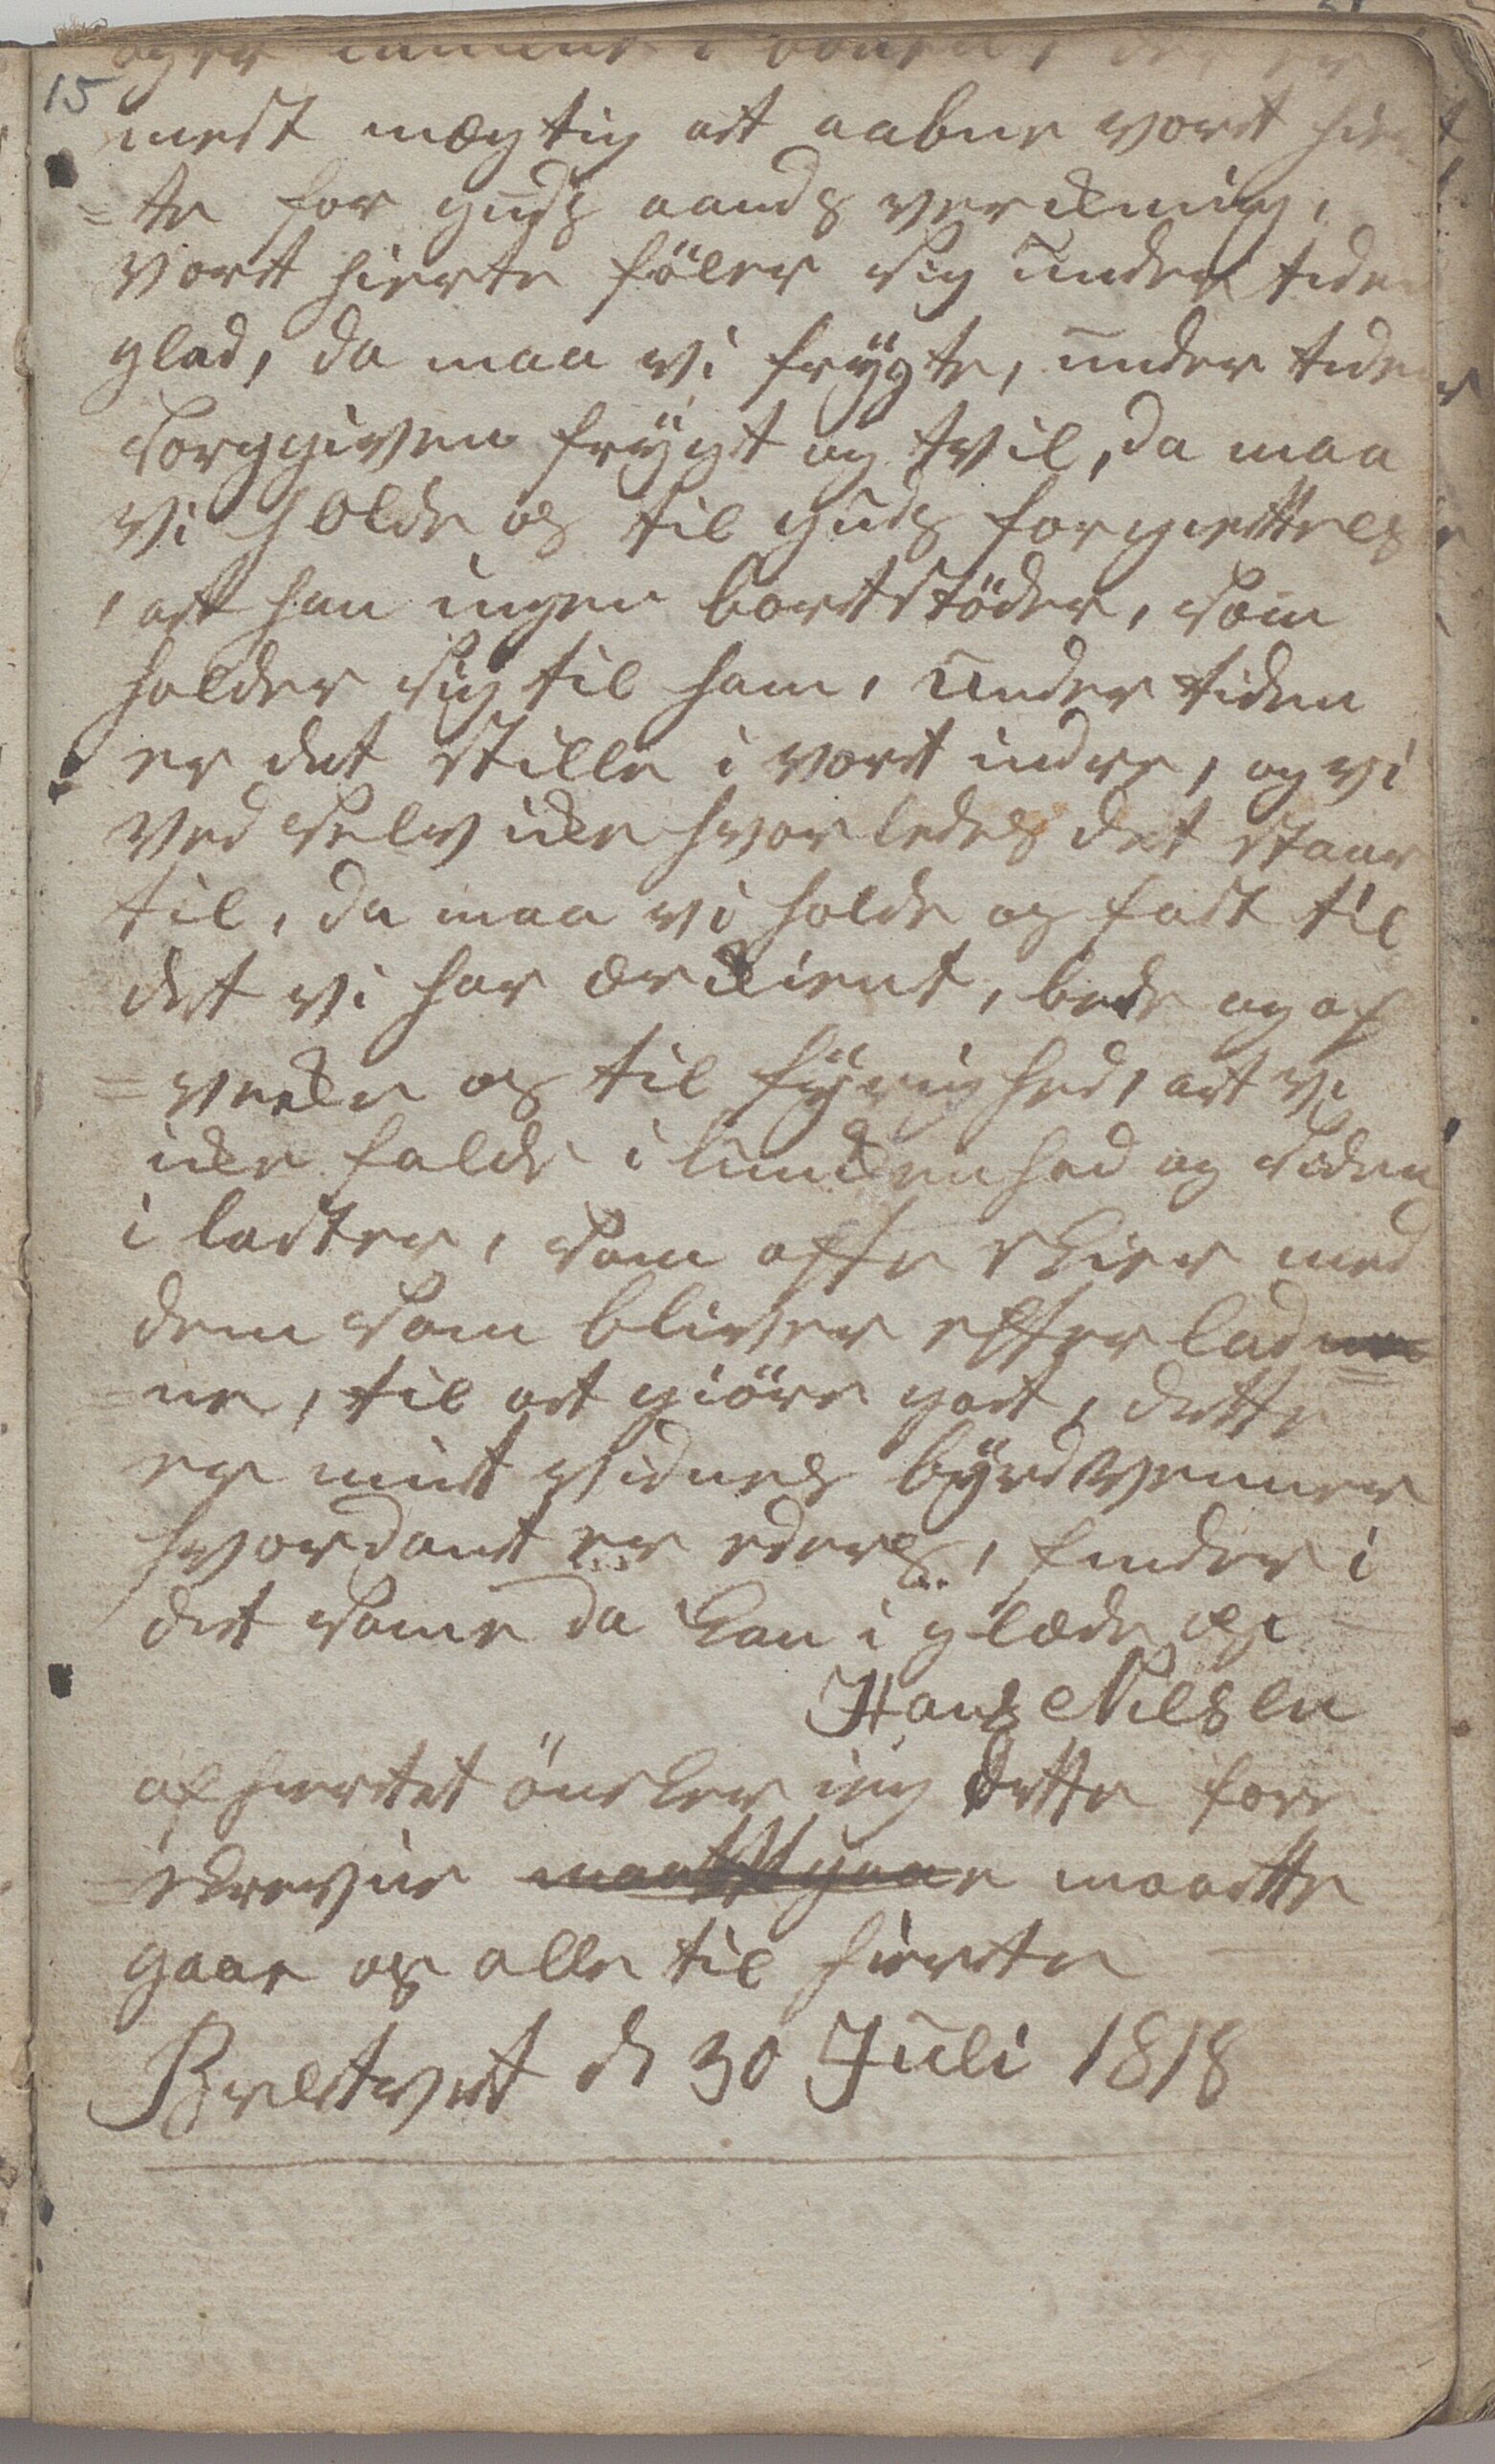 15
mest mægtig at aabne vort hier
=te for guds aands verckning,
vort hierte föler sig under tiden
glad, da maa vi frÿgte, under tiden
sorggiven frÿgt og tvil, da maa
vi holde os til guds forgiettels
, at han ingen bortstöder, som
holder sig til ham, under tiden
er det stille i vort indre, og vi
ved selv icke hvorledes det staar
til, da maa vi holde os fast til
det vi har erckient, bede og op
=vecke os til fÿrighed, at vi
icke falde i lunckenhed og siden
i laster, som ofte skier med
dem som bliver efterlad
ne, til at giöre got, dette
er mit vidnes bÿrd venner
hvordant er eders, finder i
det same da kan i glæde os
Hans Nielsen
af hiertet önsker ieg dette fore
skrevne maatte
gaae os alle til hierte
Brestvet d 30 Juli 1818